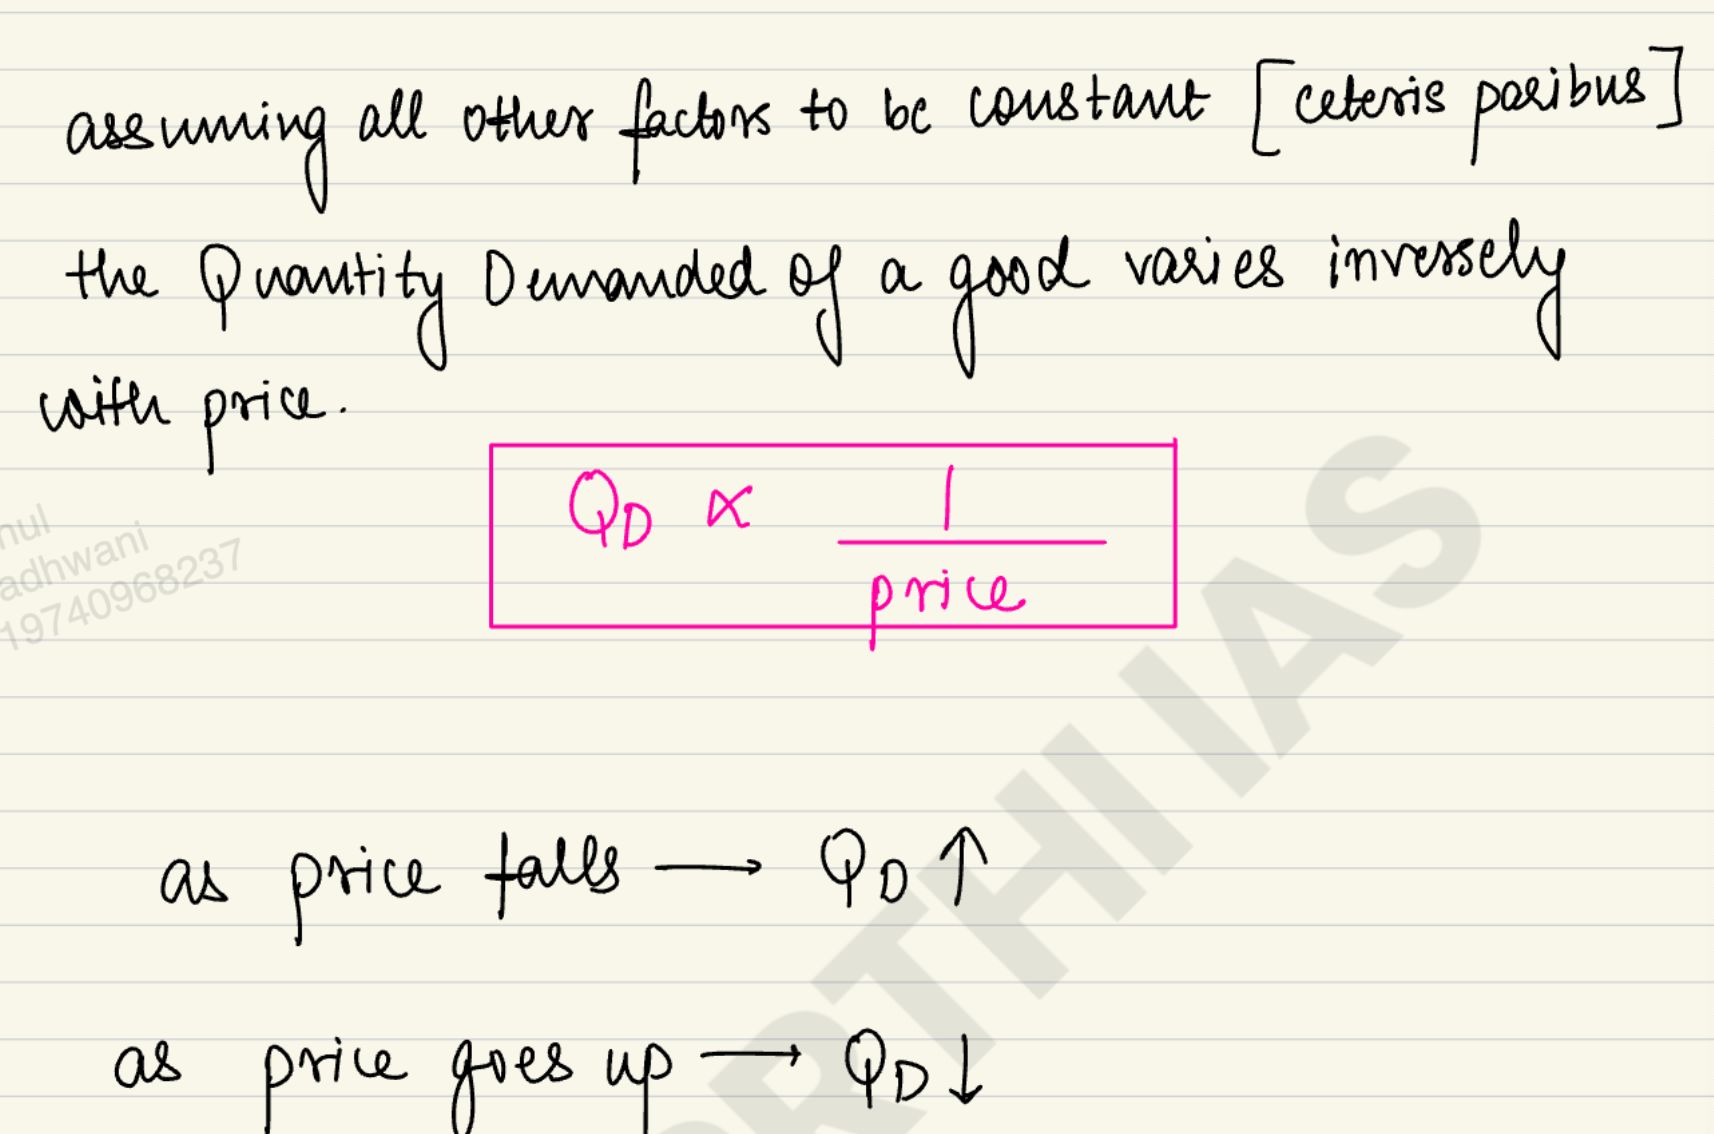 assuming all other factors to be constant [ceteris paribus]
the Quantity Demanded of a good varies inversely
with price.
QD ∝ 1 / price
hul
adhwani
19740968237
as price falls → QD ↑
as price goes up → QD ↓
RTHI IAS